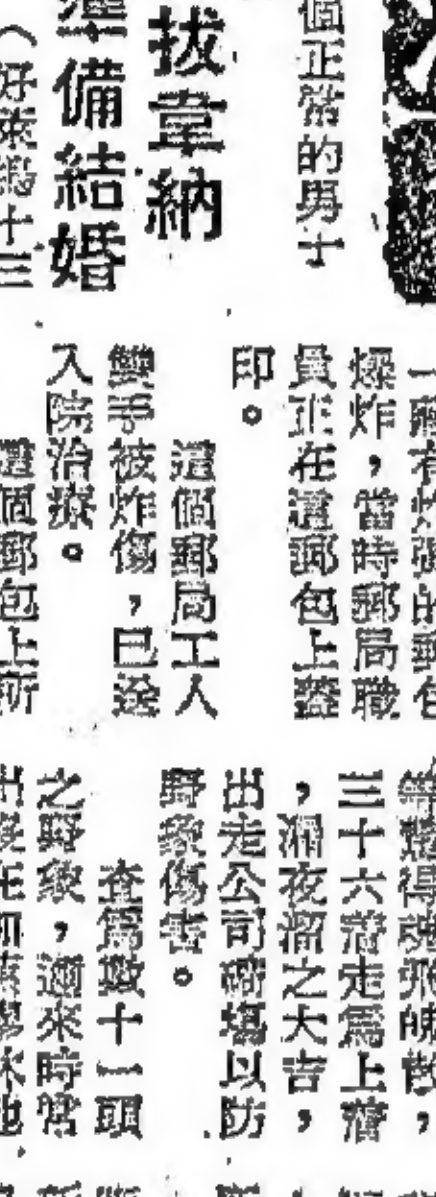 個正常的男士
拔韋納
準備結婚
〈好萊塢十三
一隻有炸彈的郵包
爆炸，當時郵局職
員正在這郵包上蓋
印。
這個郵局工人
雙手被炸傷，已送
入院治療。
這個郵包上所
等驚得魂飛魄散，
三十六着走爲上着
，漏夜溜之大吉，
出走公司礦場以防
野象傷害。
查爲數十一頭
之野象，邇來時常
出現在